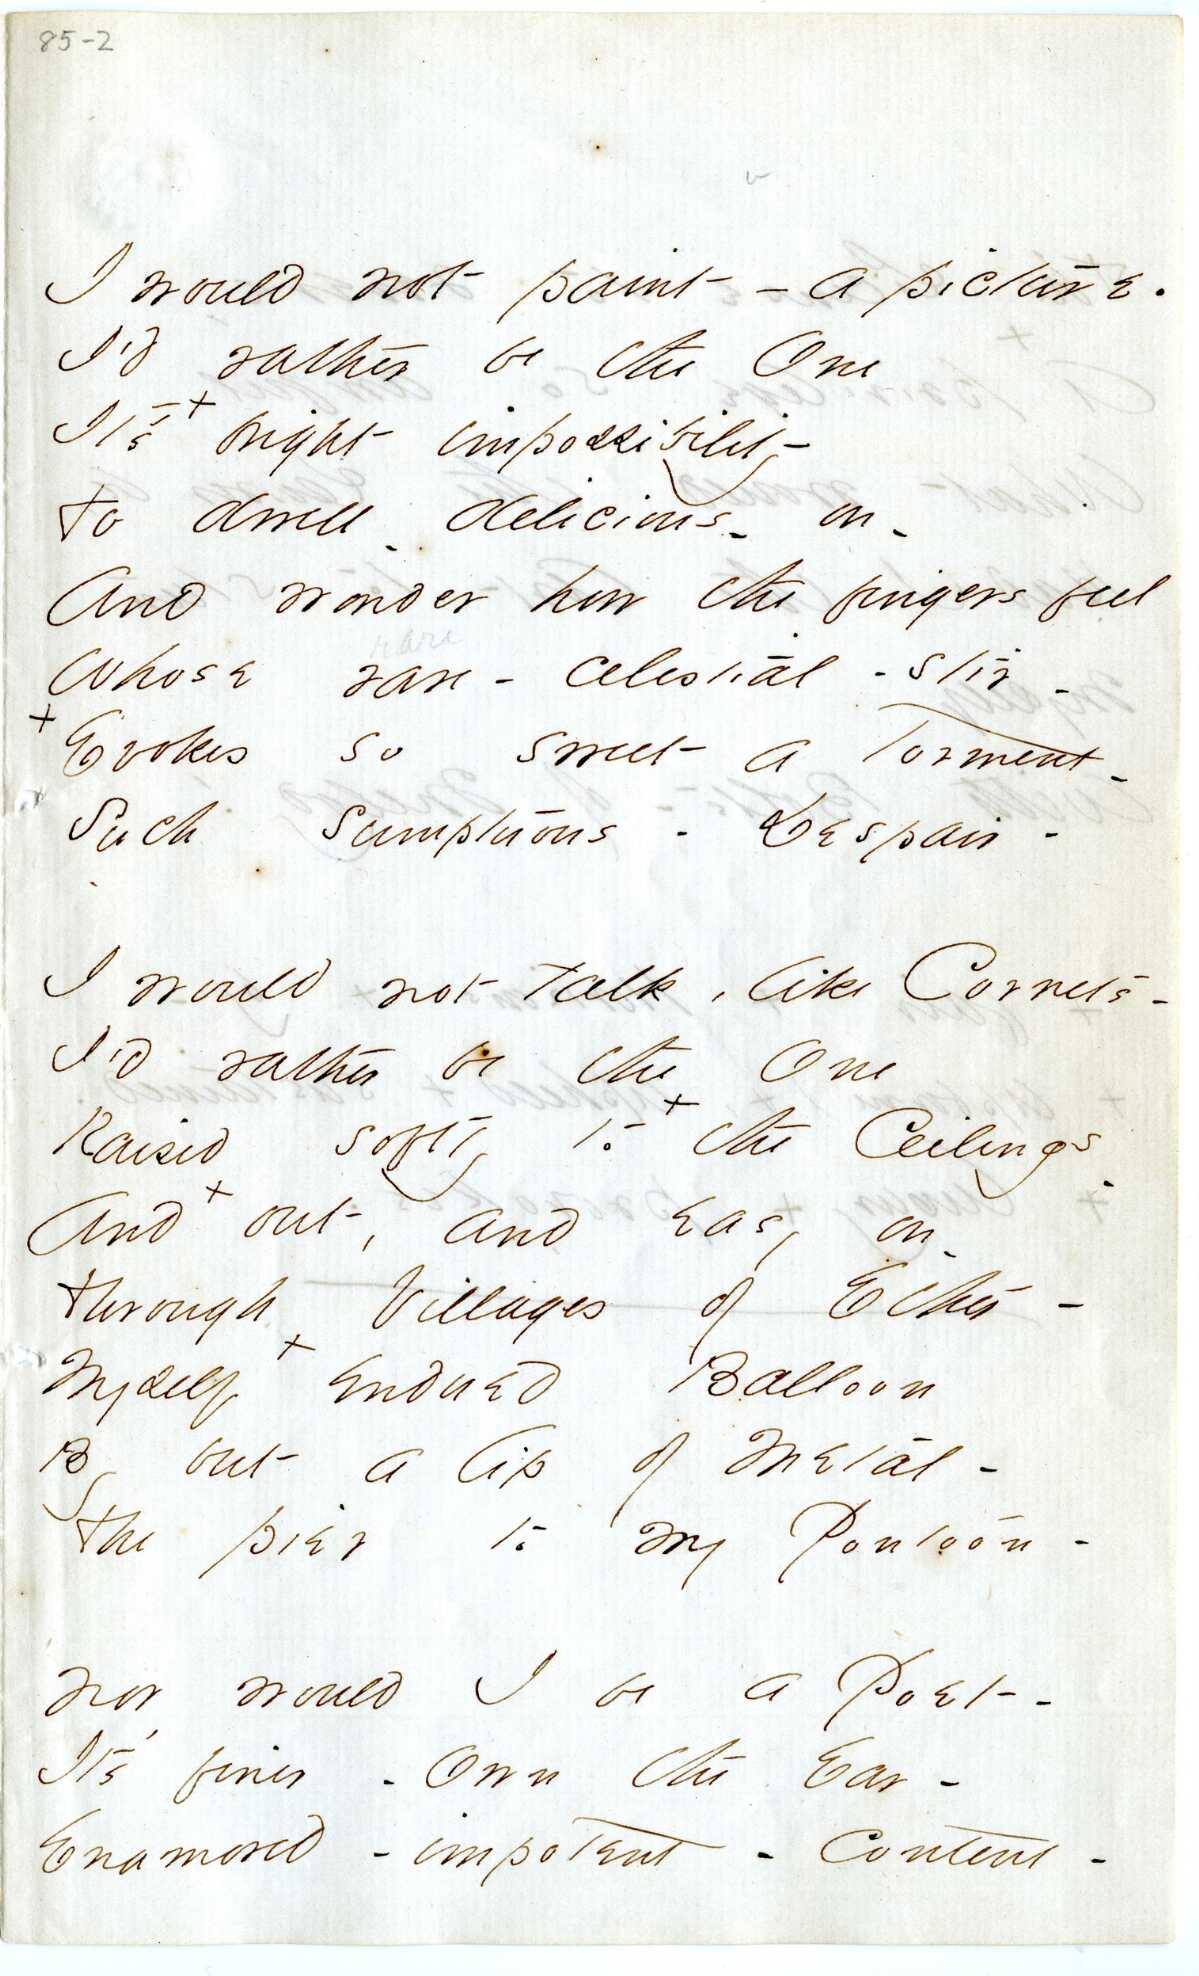 85-2
I would not paint – a picture.
I'd rather be the One
It's + bright impossibility
to dwell - delicious - on -
And wonder how the fingers feel
rare
Whose rare - celestial - stir -
+ Evokes so sweet a Torment -
Such sumptuous - Despair -
I would not talk, like Cornets -
I'd rather be the One
Raised softly to + the Ceilings -
And + out, and easy on -
Through Villages of Ether -
Myself + Endued Balloon
By but a lip of Metal -
The pier to my Pontoon -
Nor would I be a Poet -
It's finer - Own the Ear -
Enamored - impotent - content -